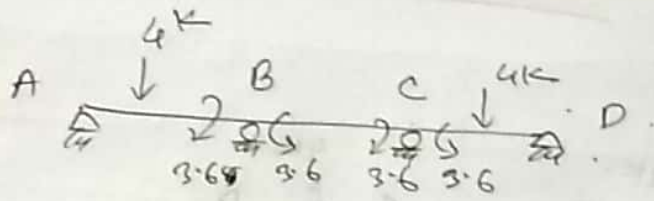 4K
A B C 4K D
3.6 3.6 3.6 3.6